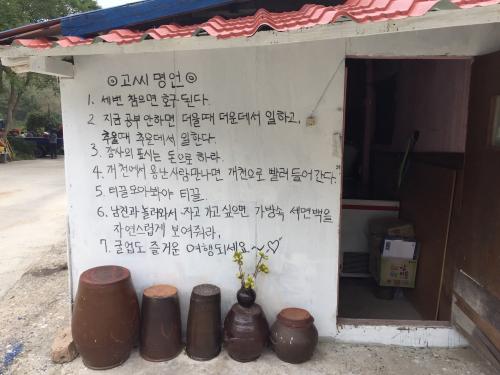 ◎고씨명언◎
1. 세번 참으면 호구된다.
2. 지금 공부 안하면 더울때 더운데서 일하고,
추울때 추운데서 일한다.
3. 감사의 표시는 돈으로 하라.
4. 개천에서 용난 사람만나면 개천으로 빨려들어간다.
5. 티끌모아봐야 티끌.
6. 남친과 놀러와서 자고 가고 싶으면 가방속 세면백을
자연스럽게 보여줘라.
7. 굴업도 즐거운 여행되세요~~♡